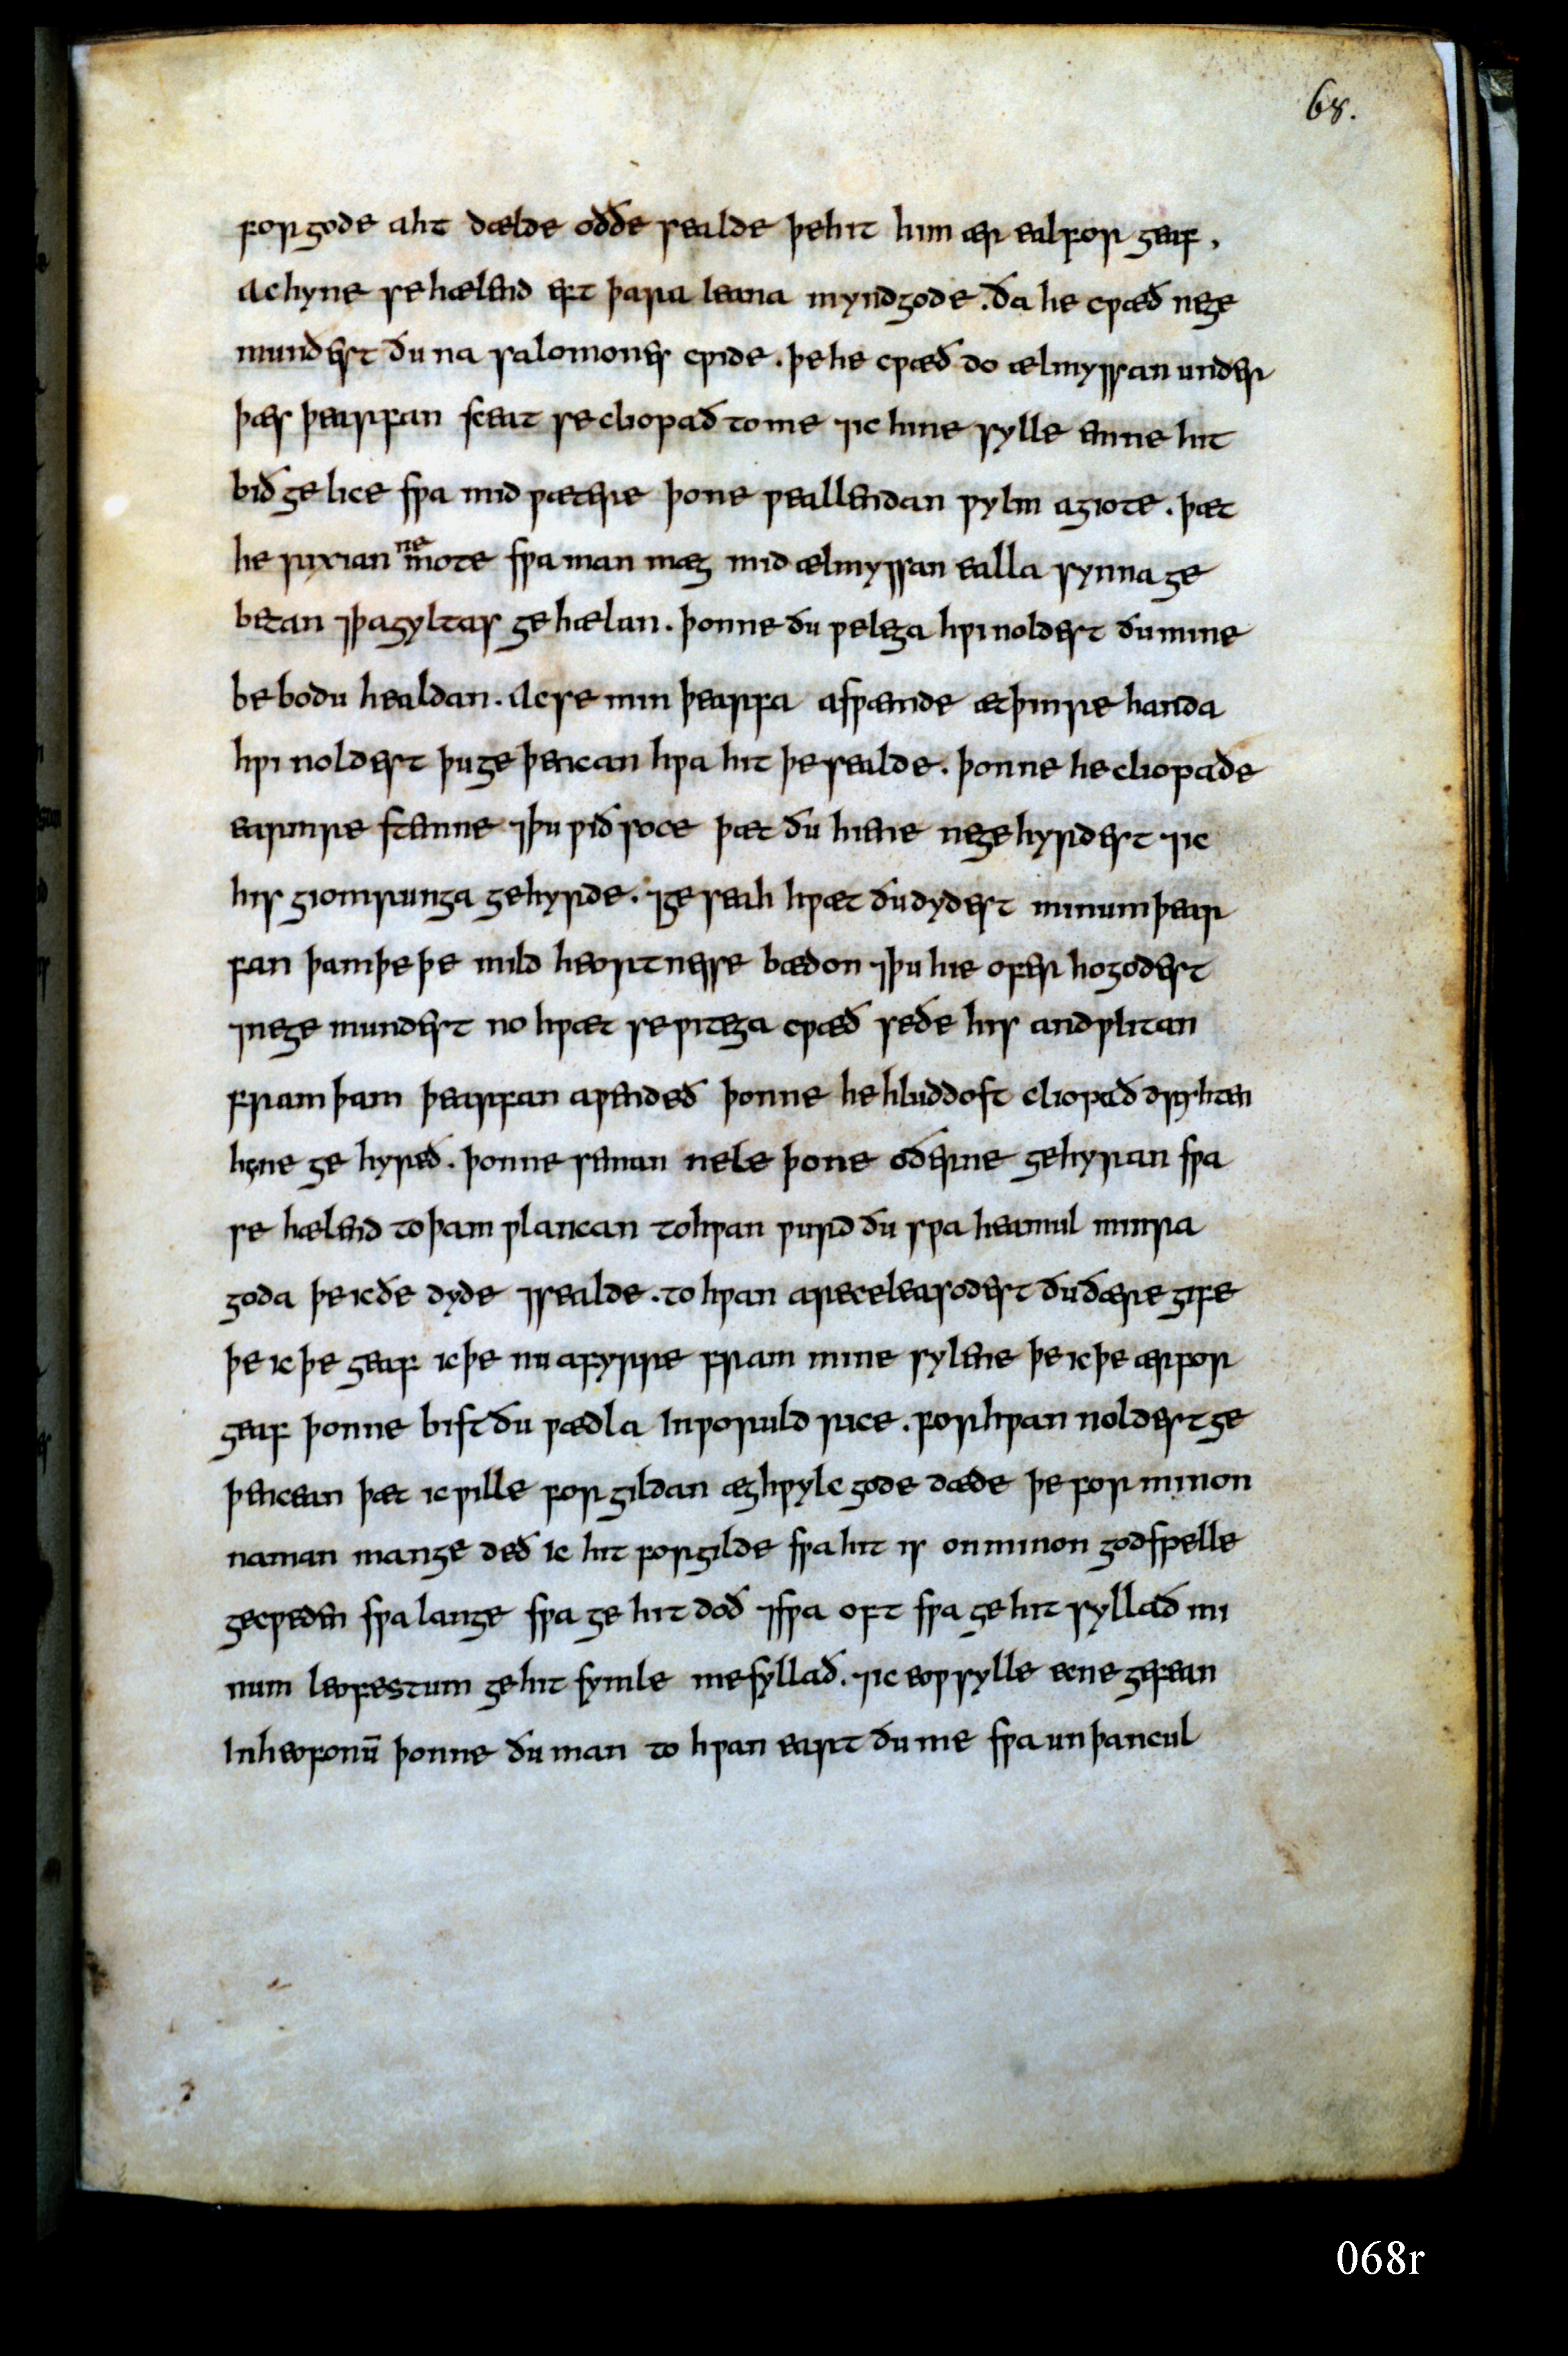 68.
for gode aht dælde oððe sealde þe hit him ær eal for geaf,
Ac hyne se hælend eft þara leana myndgode. ða he cƿæð nege
mundest ðu na salomones cƿide. þe he cƿæð do ælmyssan under
þæs þearfan sceat se cliopað to me ⁊ic hine sylle enne hit
bið gelice sƿa mid ƿætere þone ƿeallendan ƿylm agiote. þæt
he rixian ne mote sƿa man mæg mid ælmyssan ealla synna ge
betan ⁊þa gyltas gehælan. þonne ðu ƿelega hƿi noldest ðu mine
bebodu healdan. Ac se min þearfa asƿæmde æt þinre handa
hƿi noldest þu geþencan hƿa hit þe sealde. þonne he cliopade
earmre stemne ⁊þu ƿiðsoce þæt ðu hiene negehyrdest ⁊ic
his giomrunga gehyrde. ⁊geseah hƿæt ðu dydest minum þear
fan þam þe þe mildheortnesse bædon ⁊þu hie oferhogodest
⁊negemundest no hƿæt se ƿitega cƿæð seðe his andƿlitan
fram þam þearfan aƿendeð þonne he hluddost cliopað dryhten
hyne gehyreð. þonne senan nele þone oðerne gehyran sƿa
se hælend to þam ƿlancan to hƿan ƿurd ðu sƿa heamul minra
goda þe ic ðe dyde ⁊sealde. to hƿan areceleasodest ðu ðære gife
þe ic þe geaf ic þe nu afyrre fram mine sylene þe ic þe ær for
geaf þonne bist ðu ƿædla In ƿoruld rice. for hƿan noldest ge
þencean þæt ic ƿille forgildan æghƿylc gode dæde þe for minon
naman mange deð ic hit forgilde sƿa hit is on minon godspelle
gecƿeden sƿa lange sƿa ge hit doð ⁊sƿa oft sƿa ge hit syllað mi
num leofestum ge hit symle me syllað. ⁊ic eoƿ sylle ecne gefean
In heofonū þonne ðu man to hƿan eart ðu me sƿa unþancul
068r